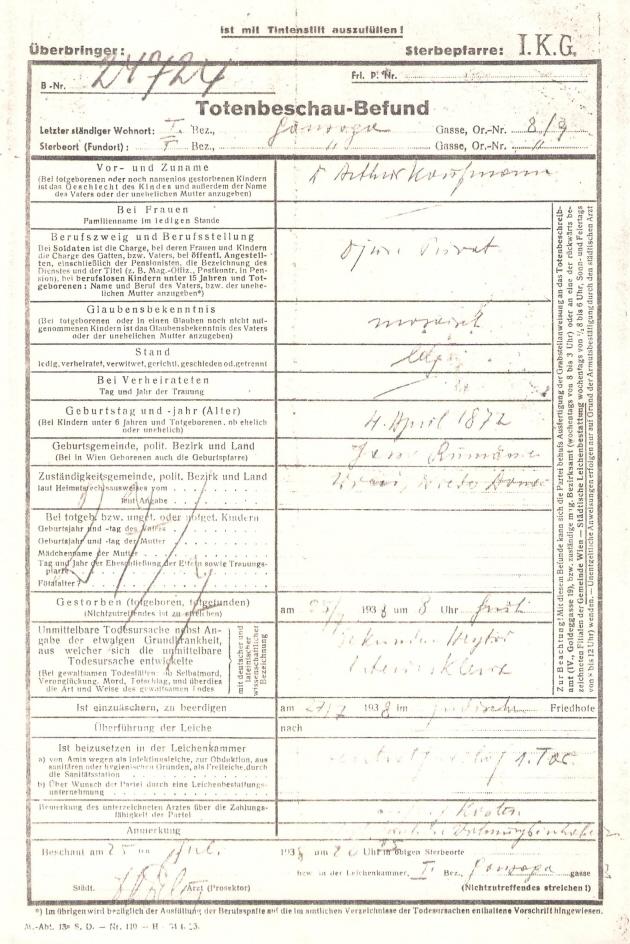 Ist mit Tintenstift auszufüllen!
Überbringer:
Sterbepfarre: I.K.G.
B-Nr. 24724
Frl. P. Nr.
Totenbeschau-Befund
Letzter ständiger Wohnort: I. Bez., Gonzaga Gasse, Or.-Nr. 8/9
Sterbeort (Fundort): I Bez., " Gasse, Or.-Nr. "
Vor- und Zuname
(Bei totgeborenen oder noch namenlos gestorbenen Kindern
ist das Geschlecht des Kindes und außerdem der Name
des Vaters oder der unehelichen Mutter anzugeben)
Dr Arthur Kaufmann
Bei Frauen
Familienname im ledigen Stande
Berufszweig und Berufsstellung
Bei Soldaten ist die Charge, bei deren Frauen und Kindern
die Charge des Gatten, bzw. Vaters, bei öffentl. Angestell-
ten, einschließlich der Pensionisten, die Bezeichnung des
Dienstes und der Titel (z. B. Mag.-Offiz., Postkontr. in Pen-
sion), bei berufslosen Kindern unter 15 Jahren und Tot-
geborenen: Name und Beruf des Vaters, bzw. der unehe-
lichen Mutter anzugeben*)
Privat
Glaubensbekenntnis
(Bei totgeborenen oder in einen Glauben noch nicht auf-
genommenen Kindern ist das Glaubensbekenntnis des Vaters
oder der unehelichen Mutter anzugeben)
mosaisch
Stand
ledig, verheiratet, verwitwet, gerichtl. geschieden od. getrennt
ledig
Bei Verheirateten
Tag und Jahr der Trauung
Geburtstag und -jahr (Alter)
(Bei Kindern unter 6 Jahren und Totgeborenen, ob ehelich
oder unehelich)
4. April 1872
Geburtsgemeinde, polit. Bezirk und Land
(Bei in Wien Geborenen auch die Geburtspfarre)
Rumänien
Zuständigkeitsgemeinde, polit. Bezirk und Land
laut Heimatsrechtsausweises vom
laut Angabe
Bei totgeb. bzw. unget. oder notget. Kindern
Geburtsjahr und -tag des Vaters
Geburtsjahr und -tag der Mutter
Mädchenname der Mutter
Tag und Jahr der Eheschließung der Eltern sowie Trauungs-
pfarre
Fötalalter?
Gestorben (totgeboren, totgefunden)
(Nichtzutreffendes ist zu streichen)
am 25/7 1938 um 8 Uhr früh
Unmittelbare Todesursache nebst An-
gabe der etwaigen Grundkrankheit,
aus welcher sich die unmittelbare
Todesursache entwickelte
(Bei gewaltsamen Todesfällen, ob Selbstmord,
Verunglückung, Mord, Totschlag, und überdies
die Art und Weise des gewaltsamen Todes
mit deutscher und
lateinischer
wissenschaftlicher
Bezeichnung
Ist einzuäschern, zu beerdigen
am 27/7 1938 im jüdischen Friedhofe
Überführung der Leiche
nach
Ist beizusetzen in der Leichenkammer
a) von Amts wegen als Infektionsleiche, zur Obduktion, aus
sanitären oder hygienischen Gründen, als Freileiche, durch
die Sanitätsstation
b) Über Wunsch der Partei durch eine Leichenbestattungs-
unternehmung
1. Tor
Bemerkung des unterzeichneten Arztes über die Zahlungs-
fähigkeit der Partei
Anmerkung
Beschaut am 25 ten Juli 1938 um Uhr in obigen Sterbeorte
bzw. in der Leichenkammer, I. Bez., Gonzaga gasse
Städt. Arzt (Prosektor)
(Nichtzutreffendes streichen!)
*) Im übrigen wird bezüglich der Ausfüllung der Berufsspalte auf die im amtlichen Verzeichnisse der Todesursachen enthaltene Vorschrift hingewiesen.
Zur Beachtung! Mit diesem Befunde kann sich die Partei behufs Ausfertigung der Grabstellanweisung an das Totenbeschreib-
amt (IV., Goldeggasse 19), bzw. zuständige mag. Bezirksamt (wochentags von 8 bis 3 Uhr) oder an eine der rückwärts be-
zeichneten Filialen der Gemeinde Wien — Städtische Leichenbestattung wochentags von ½8 bis 6 Uhr, Sonn- und Feiertags
von 8 bis 12 Uhr) wenden. — Unentgeltliche Anweisungen erfolgen nur auf Grund der Armutsbestätigung durch den städtischen Arzt